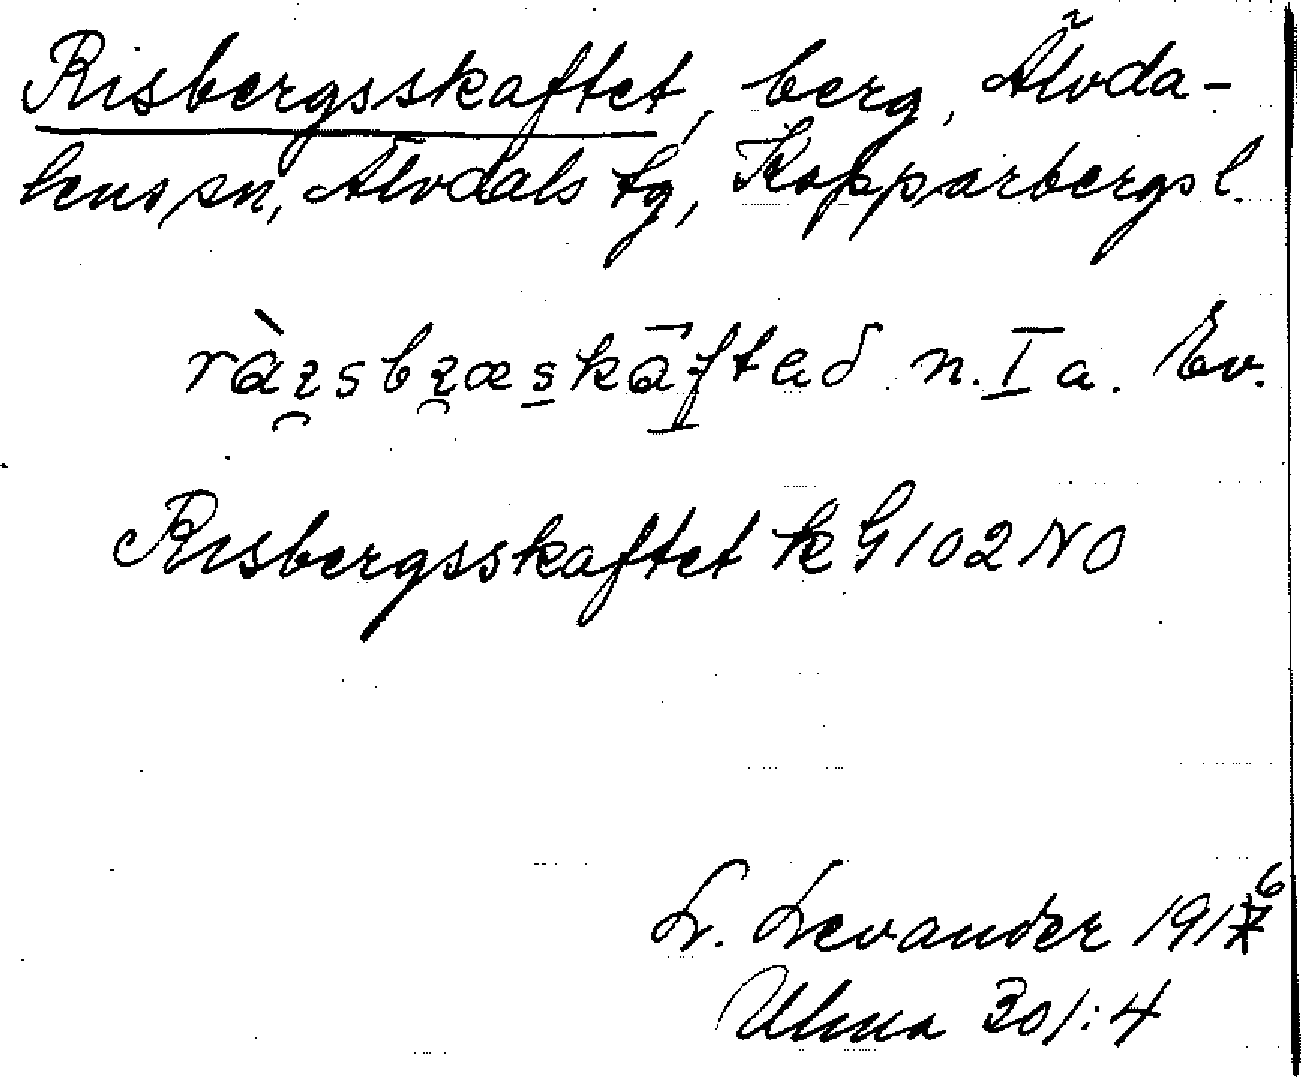 Risbergsskaftet, berg, Älvda-
lens sn, Älvdals tg, Kopparbergs l.
ràɪ̯sbɪ̯æskāftəd n. I a. Ev.
Risbergsskaftet k G 102 NO
L. Levander 1916
Ulma 301:4